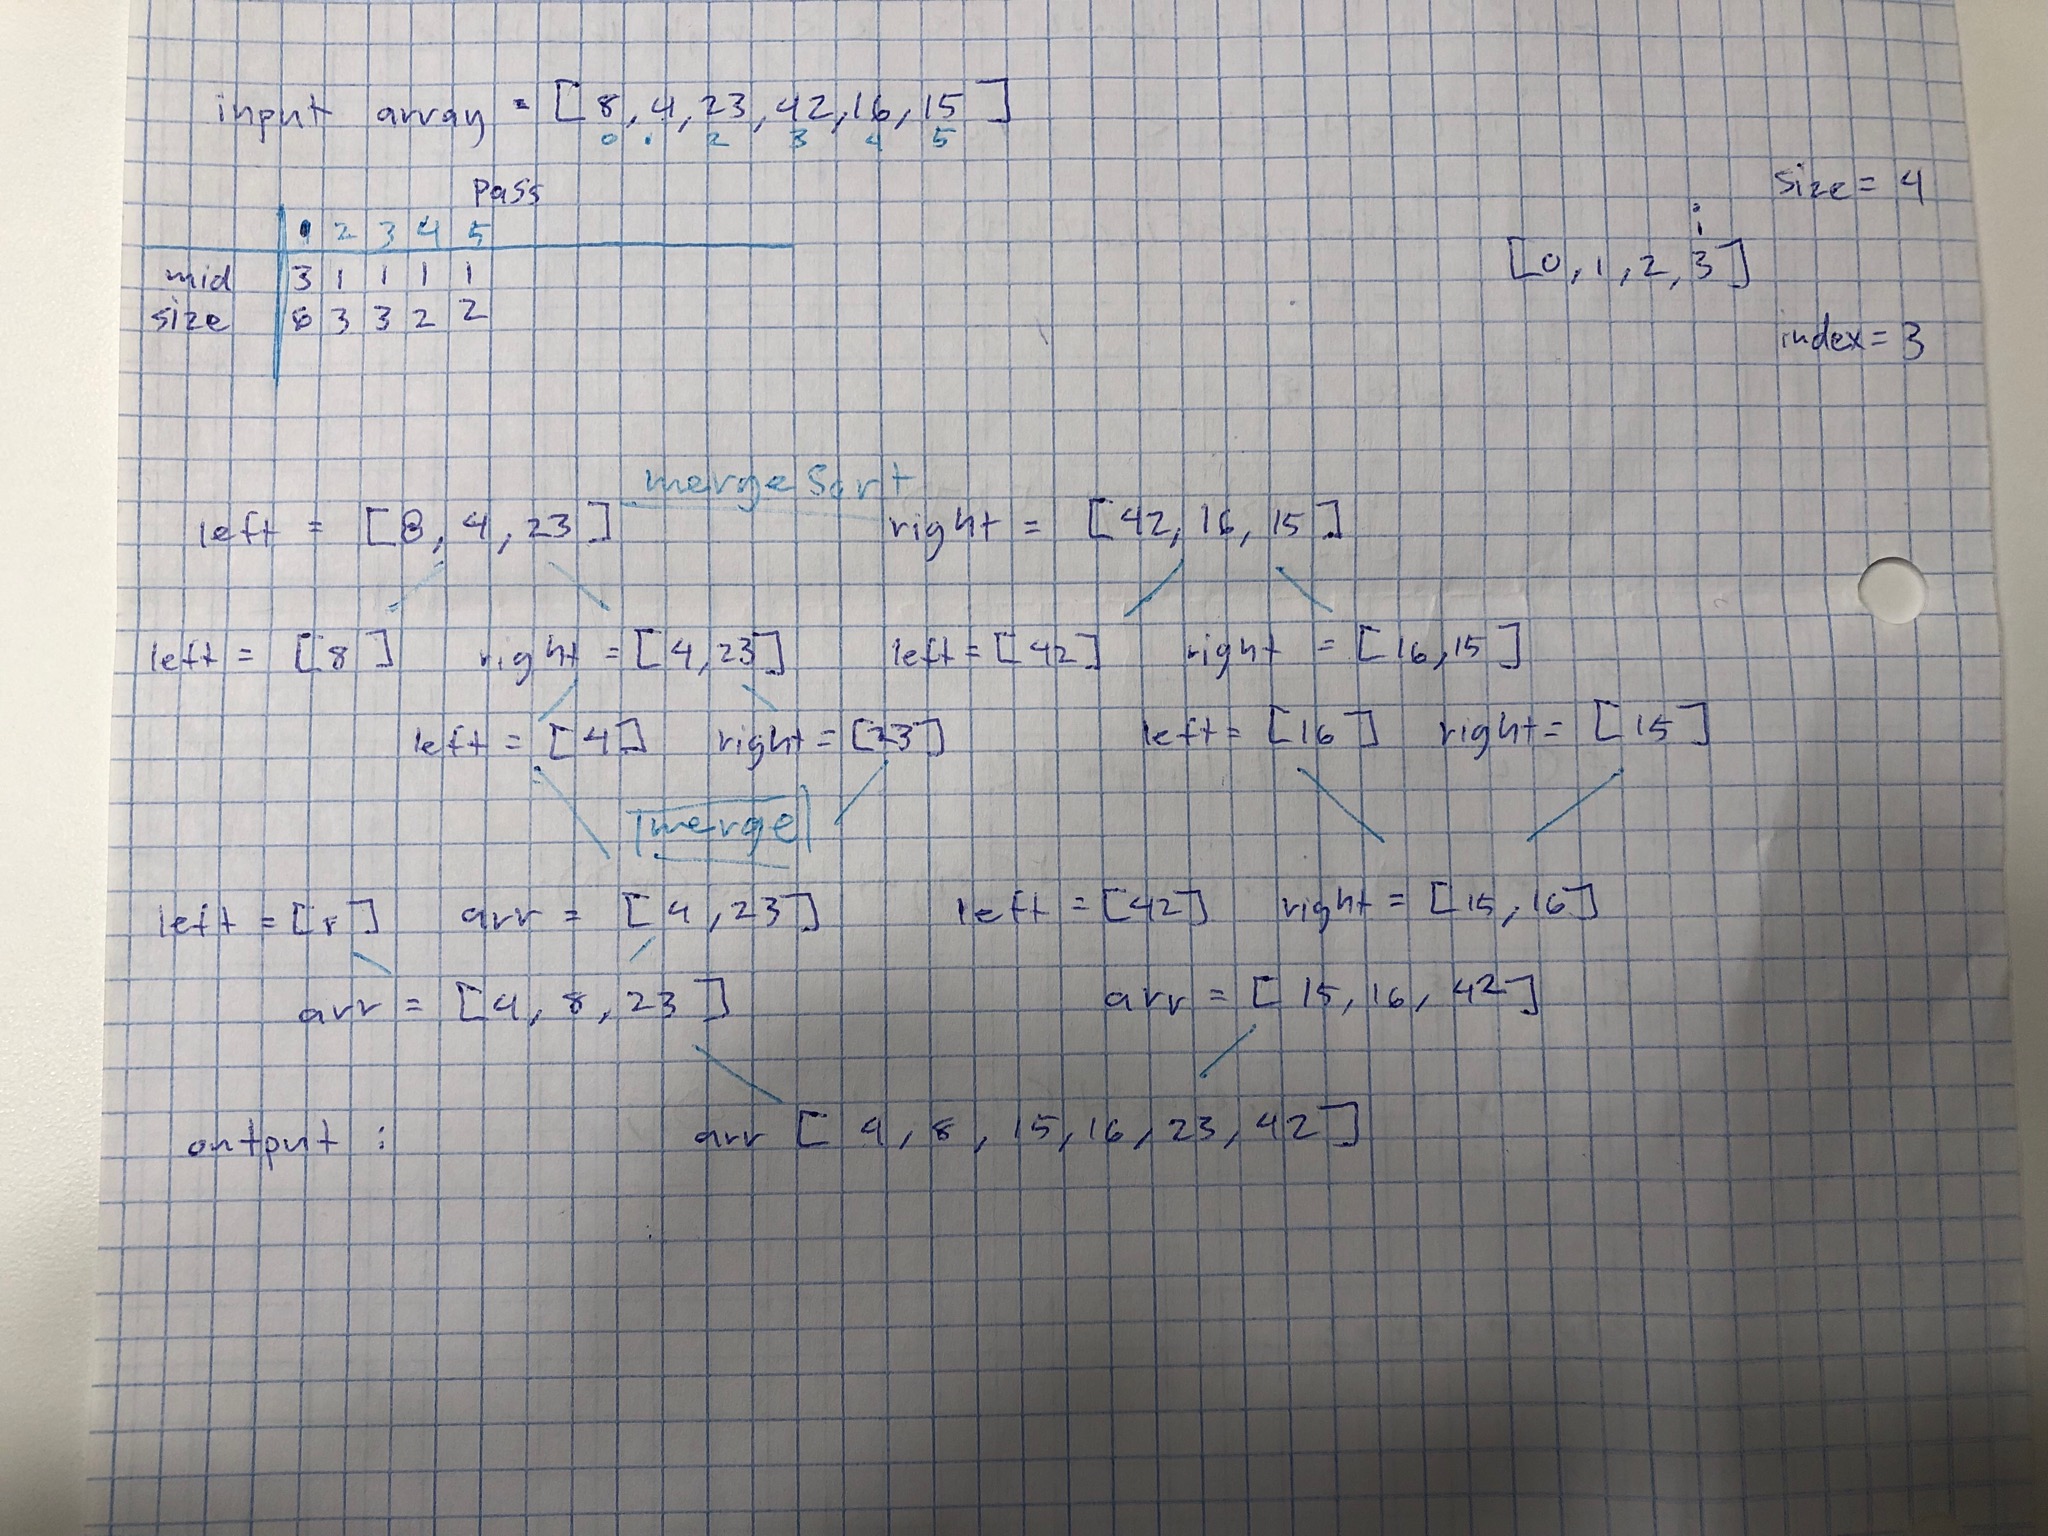 input array = [8, 4, 23, 42, 16, 15]
0 1 2 3 4 5
size = 4
pass
1 2 3 4 5
i
[0, 1, 2, 3]
mid 3 1 1 1 1
size 6 3 3 2 2
index = 3
mergeSort
left = [8, 4, 23] right = [42, 16, 15]
left = [8] right = [4, 23] left = [42] right = [16, 15]
left = [4] right = [23] left = [16] right = [15]
merge
left = [8] arr = [4, 23] left = [42] right = [15, 16]
arr = [4, 8, 23] arr = [15, 16, 42]
output : arr [4, 8, 15, 16, 23, 42]